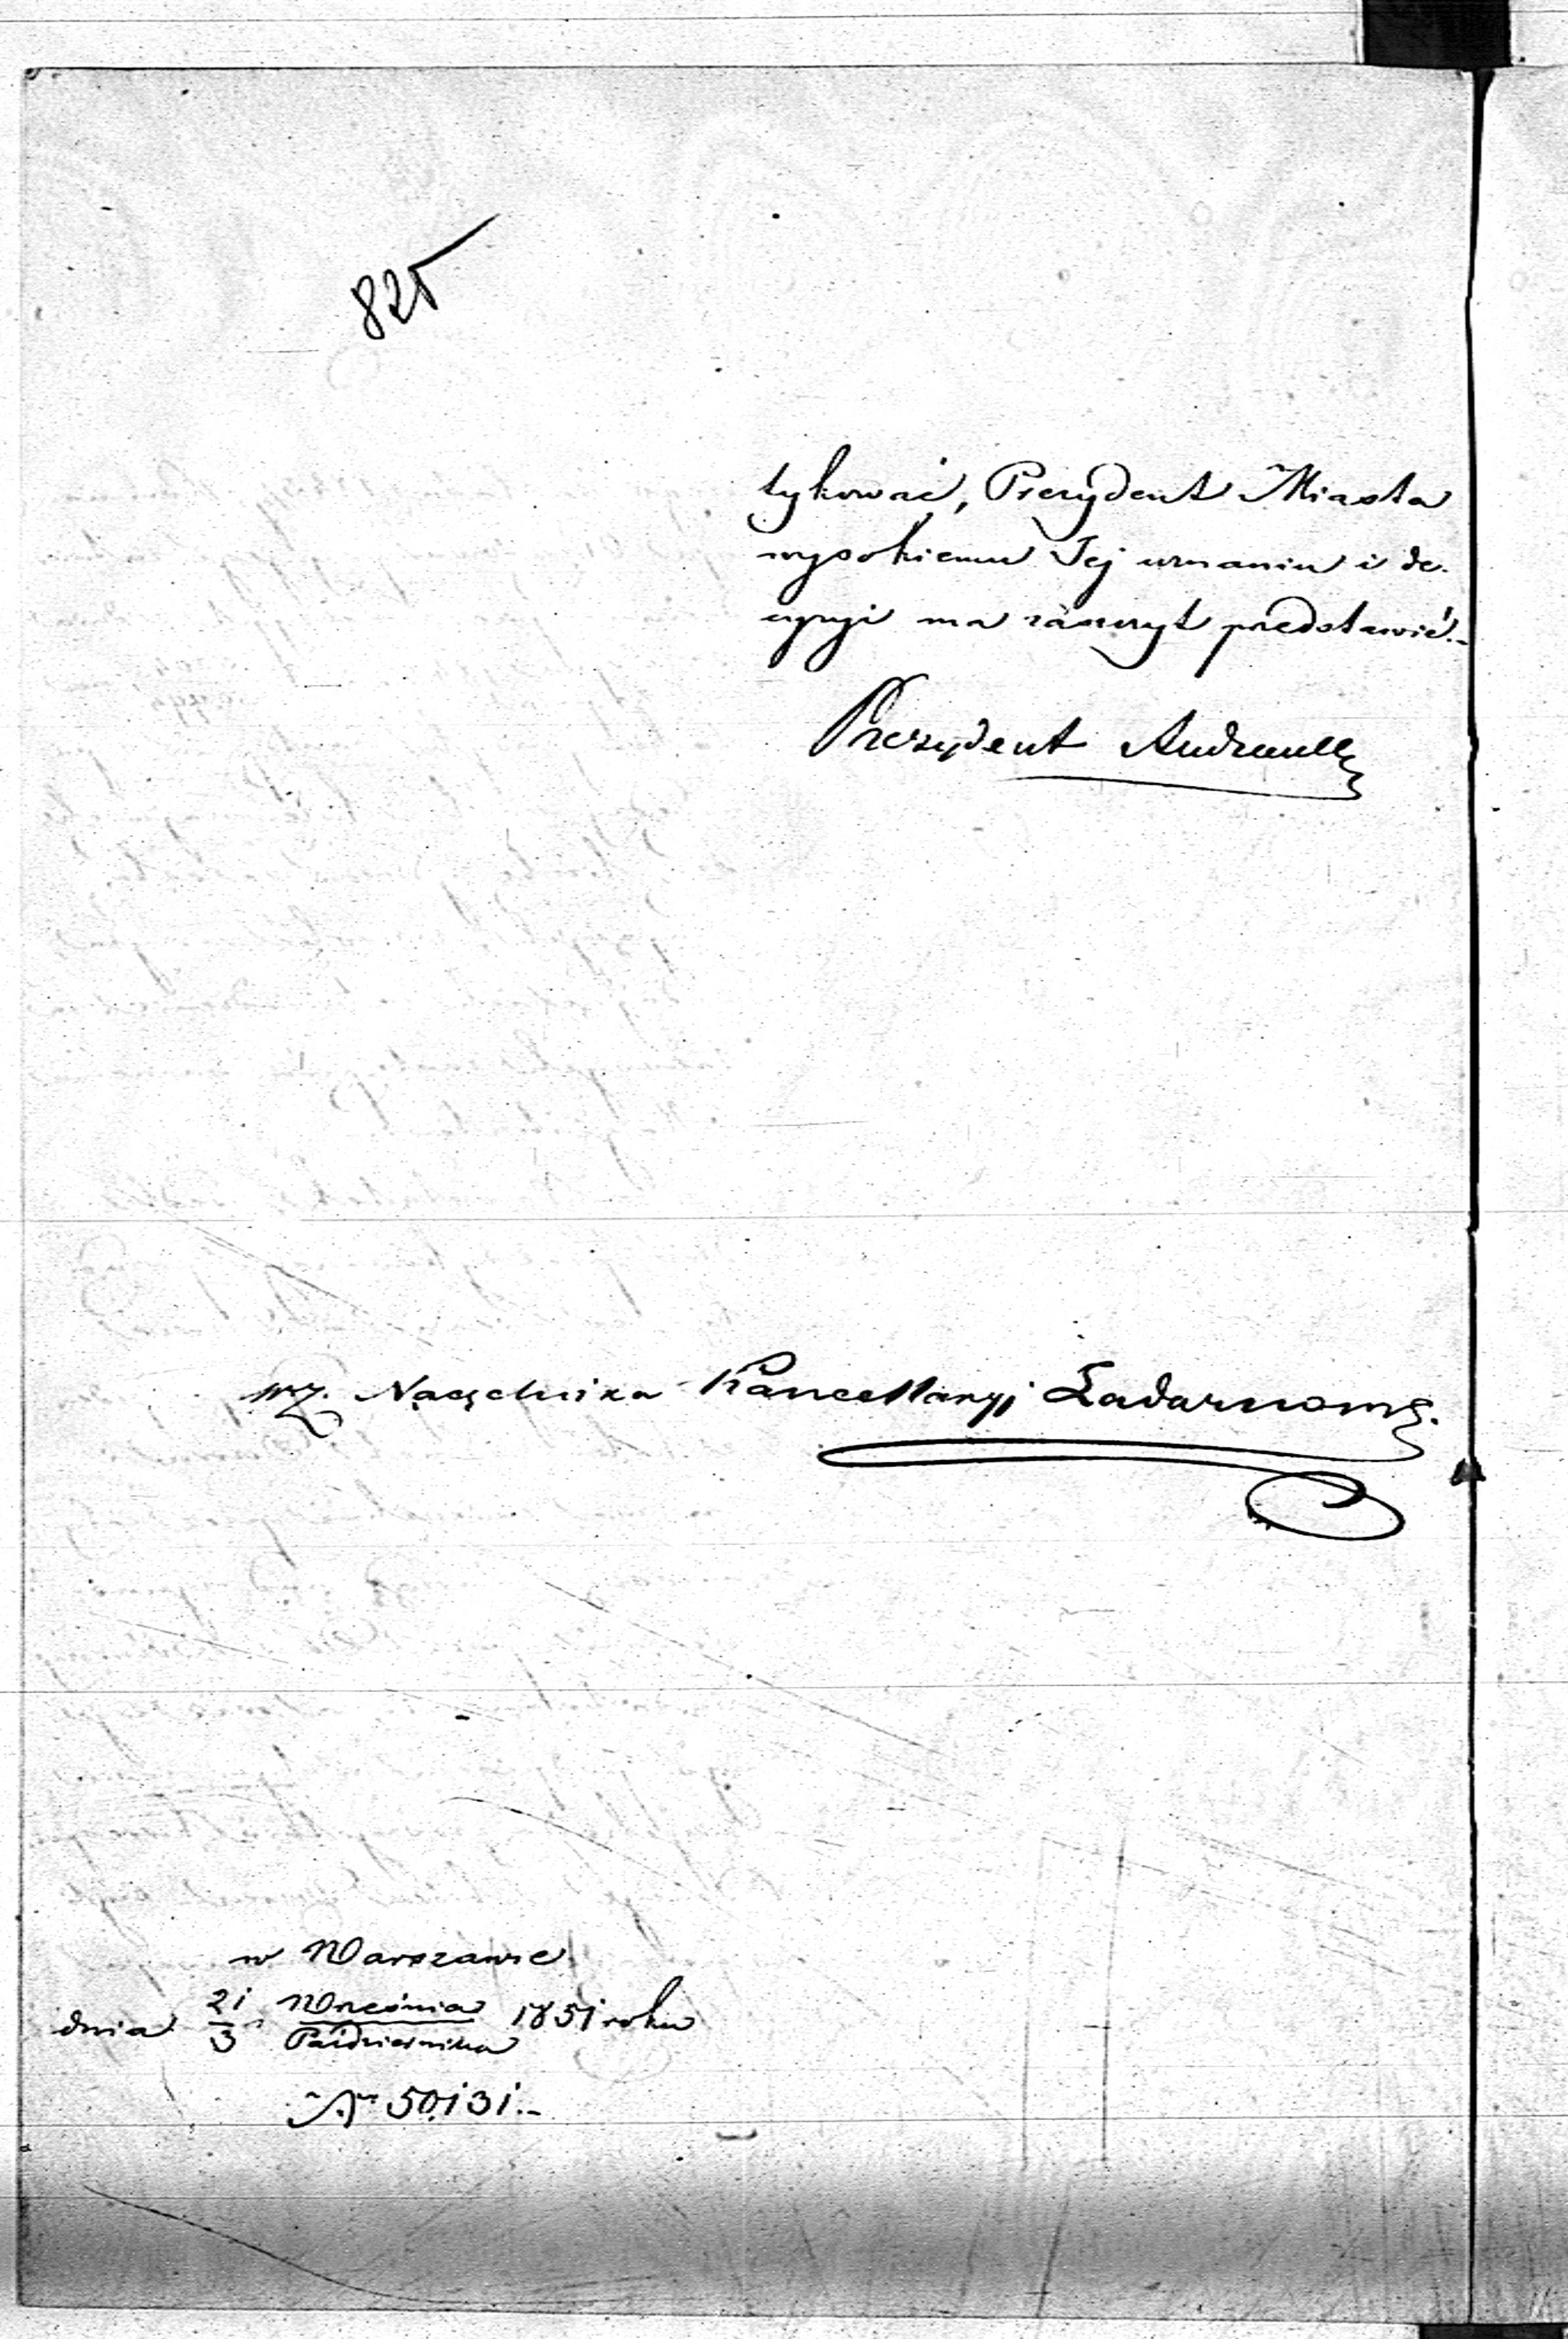 825
tykować, Prezydent Miasta
wysokiemu Jej uznaniu i de-
cyzyi ma zaszczyt przedstawić.-
Prezydent Andrault
wz. Naczelnika Kancellaryi
w Warszawie
dnia 21/3 Września/Października 1851 roku
№ 50,131.-